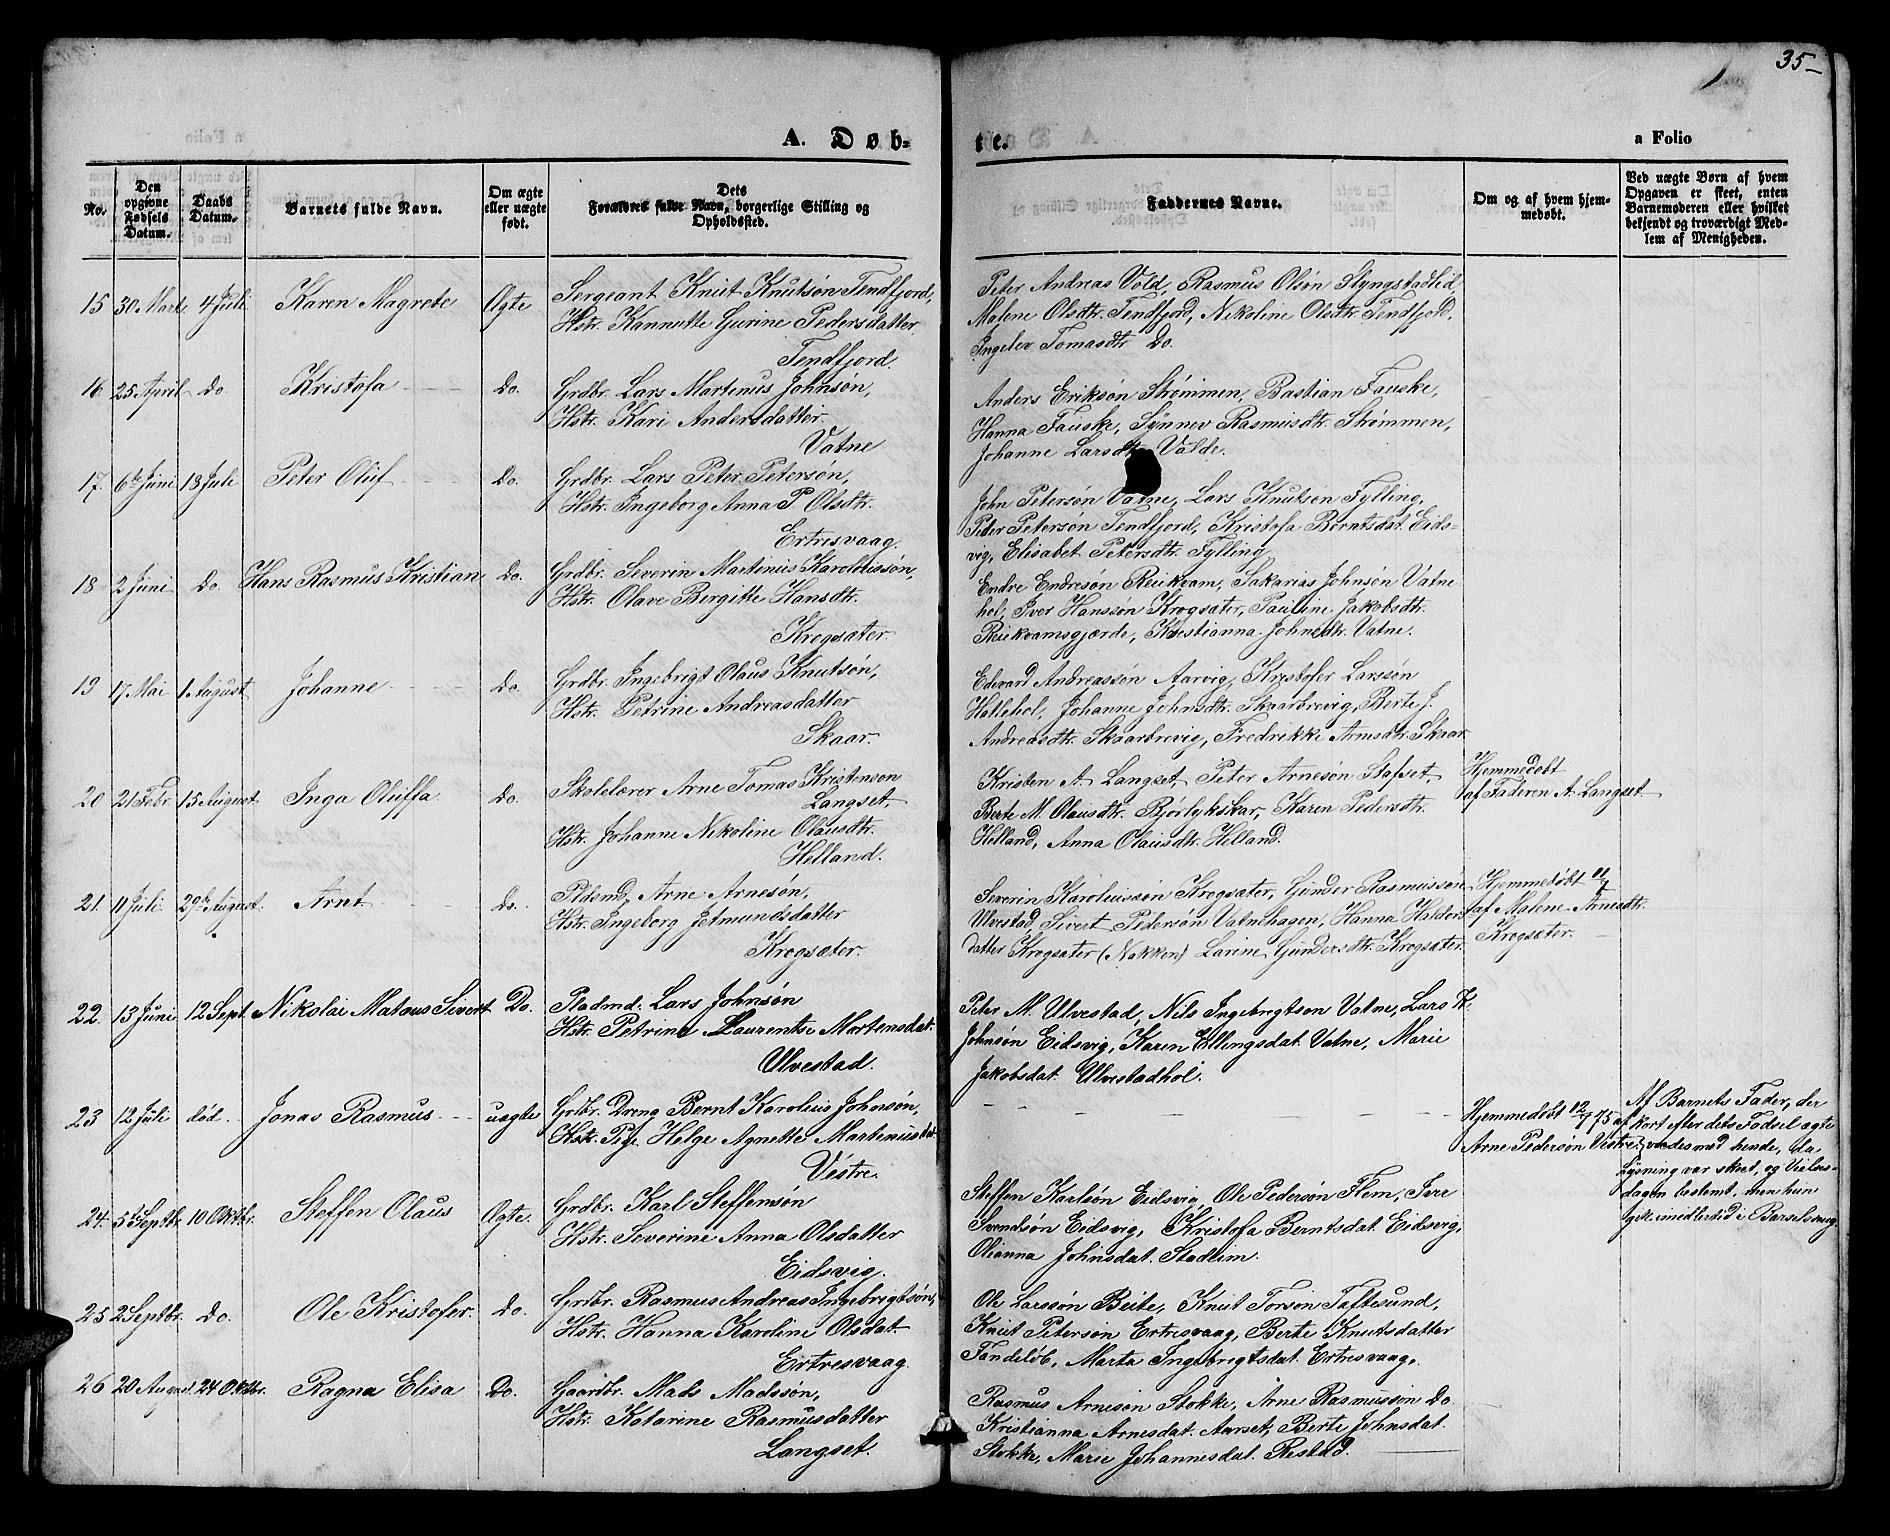 35
A. Døb-
te.
a Folio
No.
Den opgivne Fødsels Datum.
Daabs Datum.
Barnets fulde Navn.
Om ægte eller uægte født.
Dets Forældres fulde Navn, borgerlige Stilling og Opholdssted.
Faddernes Navne.
Om og af hvem hjemmedøbt.
Ved uægte Børn af hvem Opgaven er skeet, enten Barnemoderen eller hvilket bekjendt og troværdigt Medlem af Menigheden.
15 30 Marts 4 Juli Karen Magrete Ægte
Sergeant Knut Knutsøn Tendfjord,
Hstr. Kannutte Gurine Pedersdatter
Tendfjord.
Peter Andreas Vold, Rasmus Olsøn Slyngstadlid,
Malene Olsdtr. Tendfjord, Nikoline Olsdtr. Tendfjord,
Ingelev Tomasdtr Do.
16. 25 April Do. Kristofa Do.
Grdbr. Lars Martenus Johnsøn,
Hstr. Kari Andersdatter
Vatne
Anders Eriksøn Strømmen, Bastian Fauske,
Hanna Fauske, Synnev Rasmusdtr. Strømmen,
Johanne Larsdtr Valde.
17. 6te Juni 18 Juli Peter Oluf Do.
Grdbr. Lars Peter Petersøn,
Hstr. Ingeborg Anna P Olsdtr.
Ertresvaag.
John Petersøn Vatne, Lars Knutsøn Fylling,
Peder Petersøn Tendfjord, Kristofa Berntsdat. Eids-
vig, Elisabet Petersdtr. Fylling
18 2 Juni Do. Hans Rasmus Kristian Do.
Grdbr. Severin Martenus Karoliussøn,
Hstr. Olave Bergitte Hansdtr.
Krogsæter.
Endre Endresøn Reikvam, Sakarias Johnsøn Vatne
hol, Iver Hanssøn Krogsæter, Pauline Jakobsdtr.
Reikvamsgjærde, Kristianna Johnsdtr. Vatne.
19 17 Mai 1 August Johanne Do.
Grdbr. Ingebrigt Olaus Knutsøn,
Hstr. Petrine Andreasdatter
Skaar.
Edvard Andreassøn Aarvig, Kristofer Larssøn
Hatlehol, Johanne Johnsdtr. Skaarbrevig, Berte J.
Andreasdtr. Skaarbrevig, Fredrikke Arnesdtr. Skaar
20 21 Febr. 15 August Inga Oluffa Do.
Skolelærer Arne Tomas Kristenson
Langset,
Hstr. Johanne Nikoline Olausdtr.
Helland.
Kristen A. Langset, Peter Arnesøn Stafset,
Berte M. Olausdtr. Bjørlykskar, Karen Pedersdtr.
Helland, Anna Olausdtr. Helland.
Hjemmedøbt
af Faderen A. Langset.
21. 11 Juli 29de August. Arnt Do.
Pldsmd, Arne Arnesøn,
Hstr. Ingeborg Jetmundsdatter
Krogsæter.
Severin Karoliussøn Krogsæter, Gunder Rasmussøn
Ulvestad, Sivert Pedersøn Vatnehagen, Hanna Haldors
datter Krogsæter (Nakken) Larine Gundersdtr. Krogsæter.
Hjemmedøbt 11/7
af Malene Arnesdtr.
Krogsæter.
22 13 Juni 12 Sept. Nikolai Mataus Sivert Do.
Pladmd. Lars Johnsøn
Hstr. Petrine Laurentse Martensdat.
Ulvestad.
Peter M. Ulvestad, Nils Ingebregtson Vatne, Lars K.
Johnsøn Eidsvig, Karen Ellingsdat. Vatne, Marie
Jakobsdat. Ulvestadhol.
23 12 Juli død. Jonas Rasmus uægte
Grdbr. Dreng Bernt Karolius Johnsøn,
Hstr. Pige Helge Agnette Martenusdat
Vestre.
Hjemmedøbt 12/7 75 af
Arne Pedersøn Vestre
Af Barnets Fader, der
kort efter dets Fødsel ægte
viedes med hende, da
Lysning var skeet, og Vielses-
dagen bestemt, men hun
gik imidlertid i Barselseng
24. 5te Septbr. 10 Oktbr. Steffen Olaus Ægte.
Grdbr. Karl Steffensøn
Hstr. Severine Anna Olsdatter
Eidsvig.
Steffen Karlsøn Eidsvig, Ole Pedersøn Flem, Iver
Svendsøn Eidsvig, Kristofa Berntsdat. Eidsvig,
Olianna Johnsdat. Stadlim.
25 2 Septbr. Do. Ole Kristofer. Do.
Grdbr. Rasmus Andreas Ingebregtsøn,
Hstr. Hanna Karoline Olsdat.
Ertresvaag
Ole Larssøn Beite, Knut Torson Taftesund,
Knut Petersøn Ertresvaag, Berte Knutsdatter
Tandeløb, Marta Ingebregtsdat. Ertresvaag.
26 20 August 24 Oktbr. Ragna Elisa Do.
Gaardbr. Mads Madssøn,
Hstr. Katarine Rasmusdatter
Langset.
Rasmus Arnesøn Stokke, Arne Rasmussøn Do
Kristianna Arnesdat. Aarset, Berte Johnsdat.
Stokke, Marie Johannesdat. Restad.